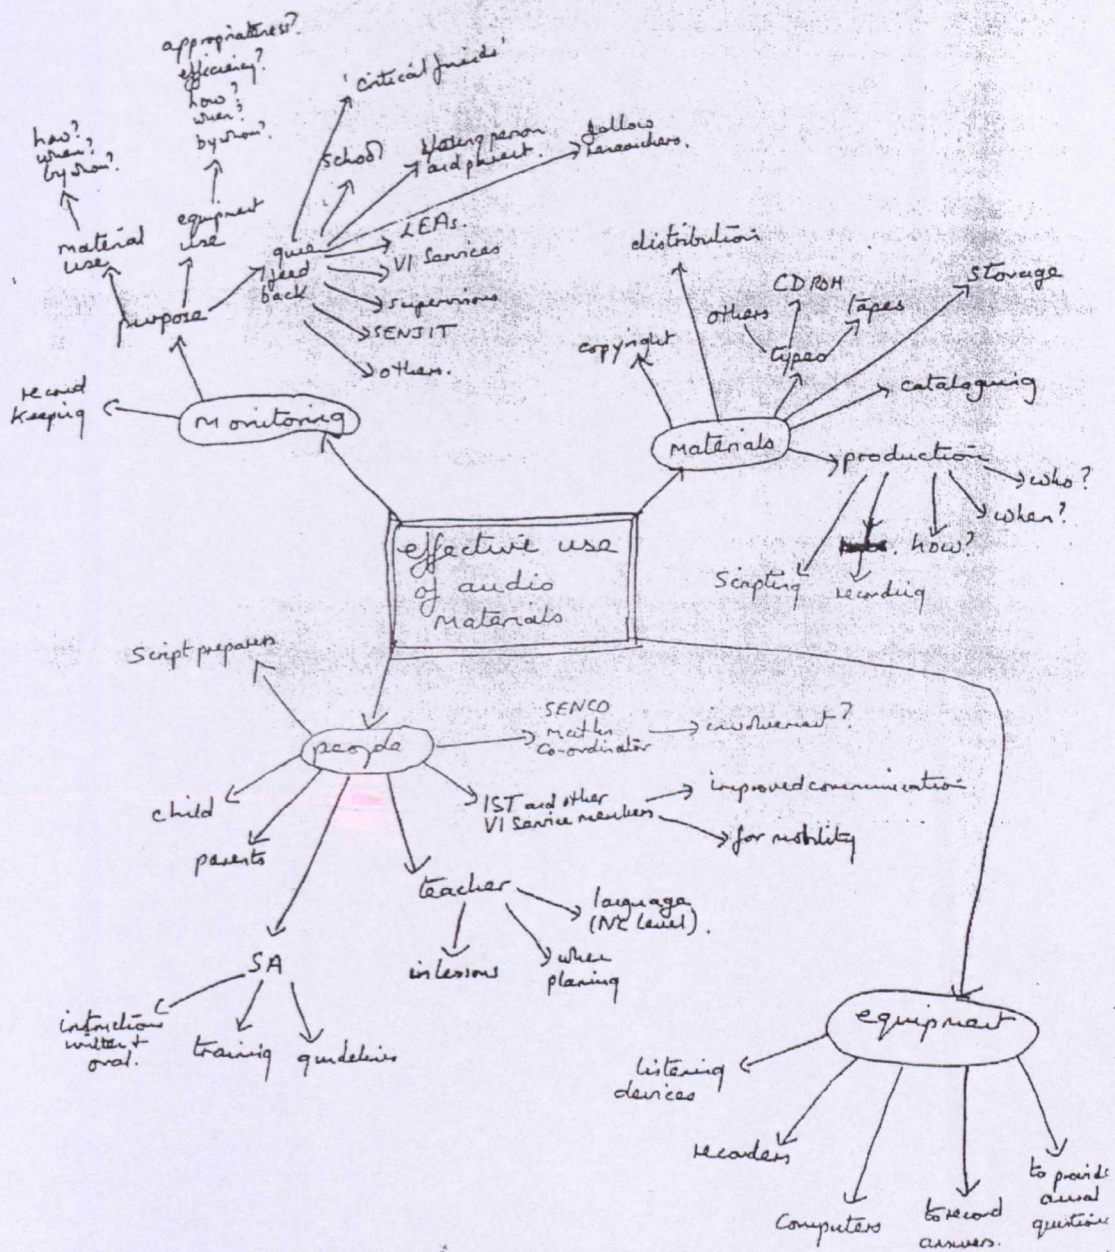 appropriateness?
efficiency?
how?
when?
by whom?
how?
when?
by whom?
material
use
equipment
use
purpose
give
feed
back
'critical friends'
school
young person
and parent.
fellow
researchers.
LEAs
VI Services
supervisors
SENJIT
others.
record
keeping
Monitoring
distribution
copyright
others
CD ROM
types
tapes
storage
cataloguing
Materials
production
who?
when?
how?
scripting
recording
effective use
of audio
materials
Script preparers
people
SENCO
maths
co-ordinator
involvement?
child
parents
IST and other
VI Service members
improved communication
for mobility
teacher
language
(NC level).
in lessons
when
planing
SA
instructions
written +
oral.
training
guidelines
equipment
listening
devices
recorders
Computers
to record
answers.
to provide
aural
questions